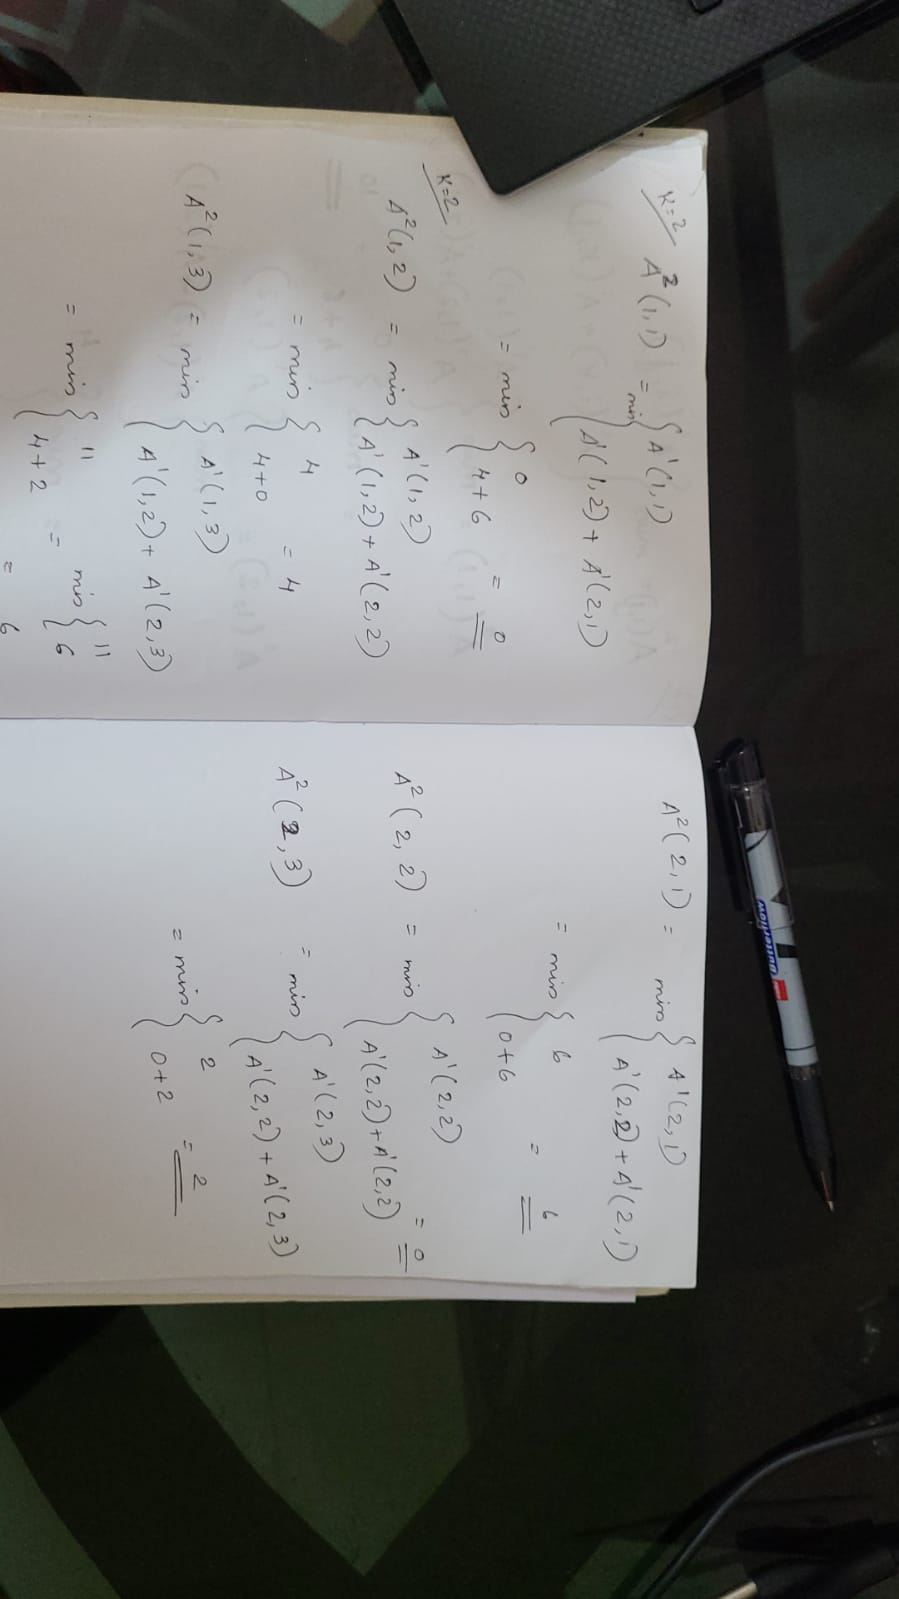 K=2 A²(1,1) = min { A¹(1,1)
A¹(1,2) + A¹(2,1)
= min { 0
4+6 = 0
K=2
A²(1,2) = min { A¹(1,2)
A¹(1,2) + A¹(2,2)
= min { 4
4+0 = 4
A²(1,3) = min { A¹(1,3)
A¹(1,2) + A¹(2,3)
= min { 11
4+2 = min { 11
6
= 6
A²(2,1) = min { A¹(2,1)
A¹(2,2) + A¹(2,1)
= min { 6
0+6 = 6
A²(2,2) = min { A¹(2,2)
A¹(2,2) + A¹(2,2) = 0
A²(2,3) = min { A¹(2,3)
A¹(2,2) + A¹(2,3)
= min { 2
0+2 = 2